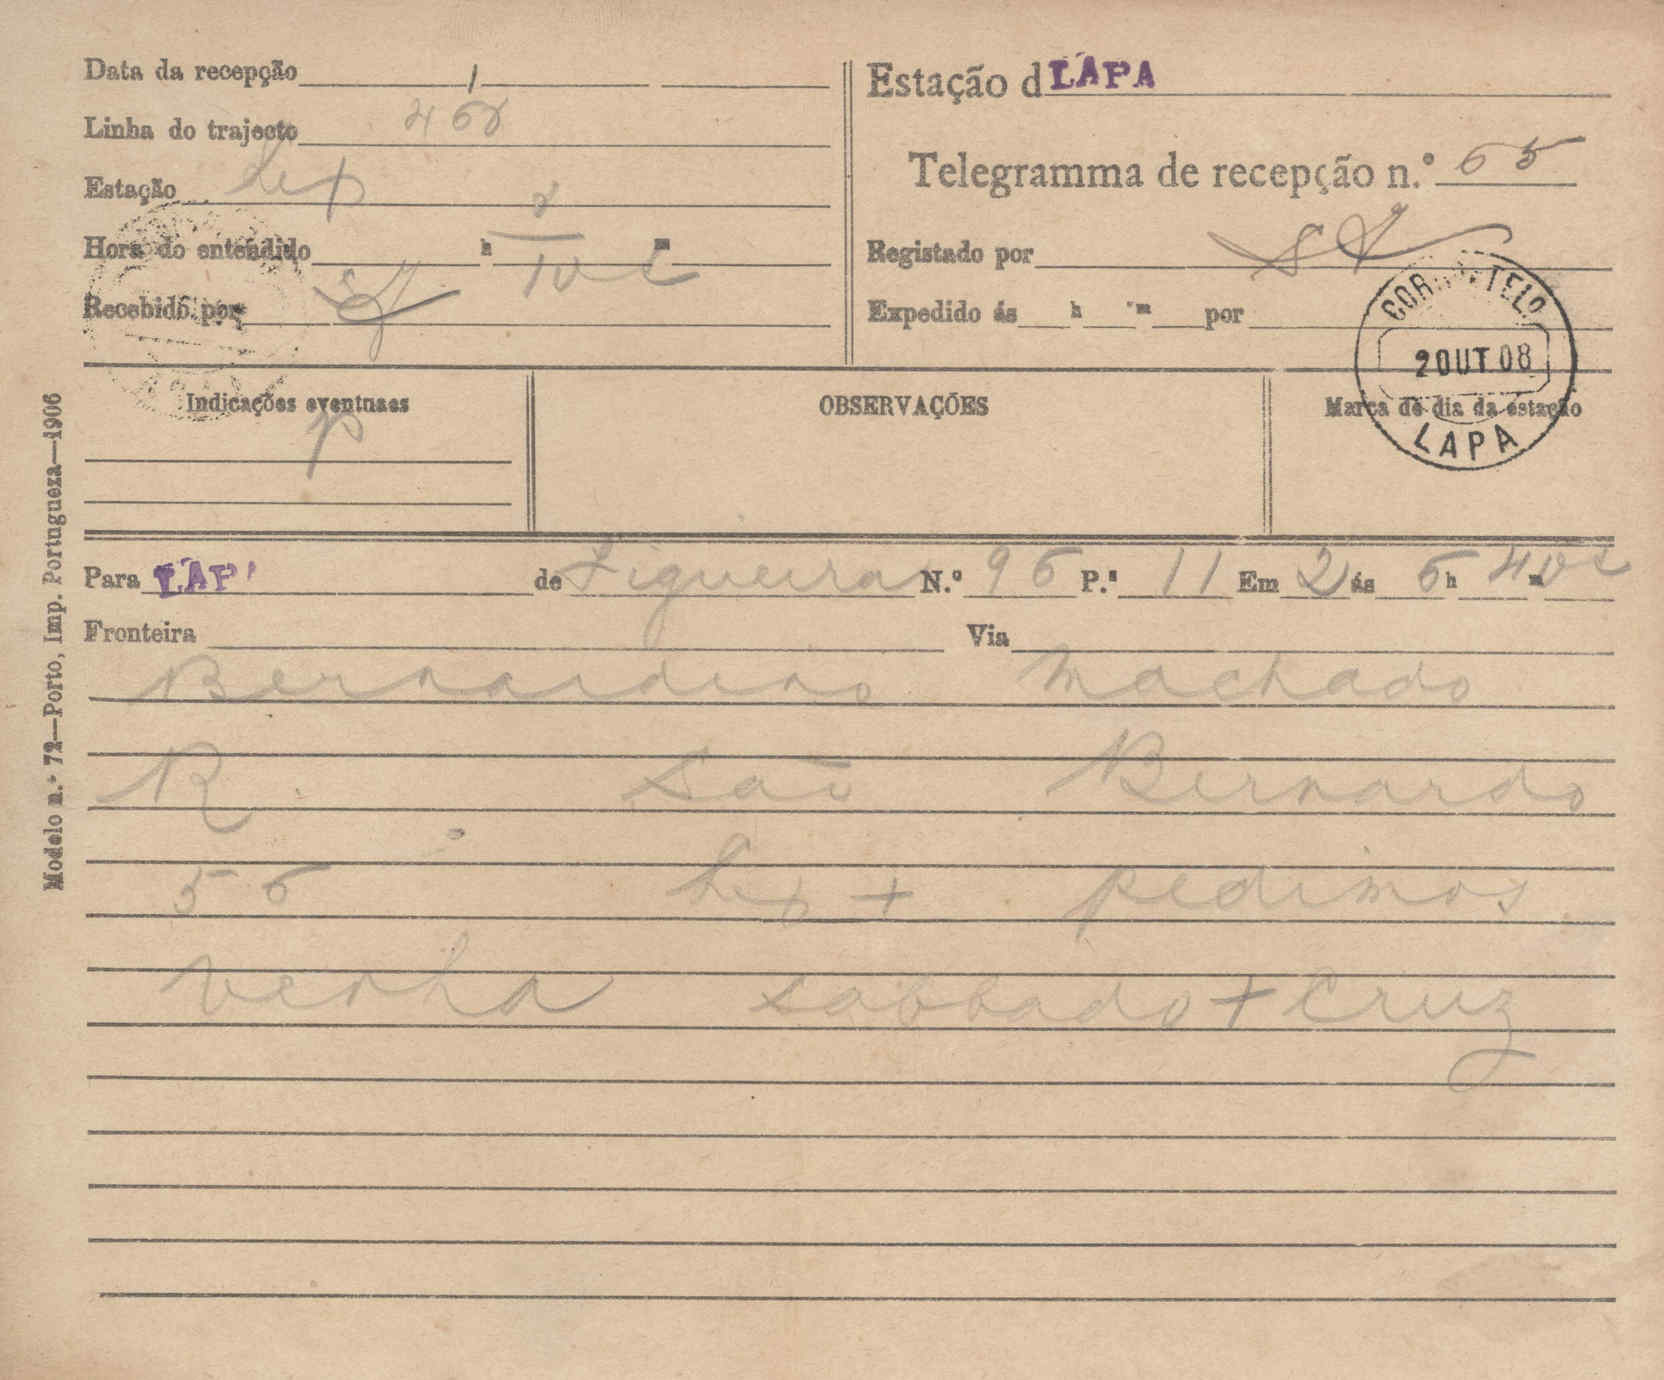 Data da recepção
Linha do trajecto
Estação
Hora do entendido h m
Recebido por
Estação d LAPA
Telegramma de recepção n.º 65
Registado por
Expedido ás h m por
CORR. E TELO
2 OUT 08
LAPA
Indicações eventuaes
P
OBSERVAÇÕES
Marca de dia da estação
Modelo n.º 72—Porto, Imp. Portugueza—1906
Para LAPA de Figueira N.º 96 P.ª 11 Em 2 ás 6 h 40 m
Fronteira Via
Bernardino Machado
R São Bernardo
56 + pedimos
venha sabbado + Cruz